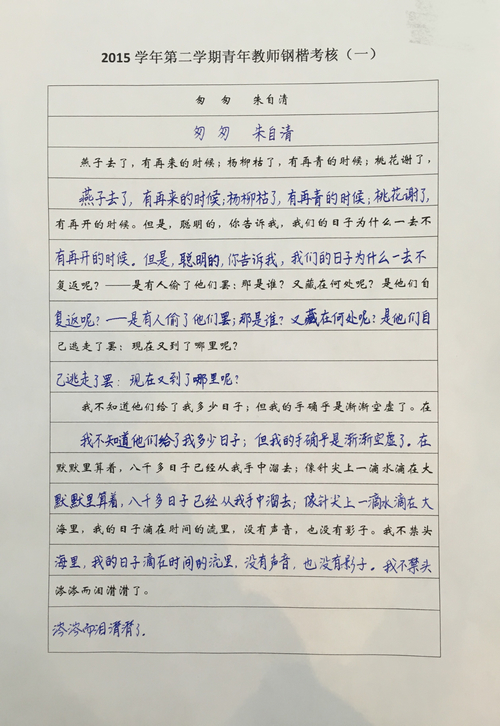 2015 学年第二学期青年教师钢楷考核（一）
匆 匆 朱自清
匆 匆 朱自清
燕子去了，有再来的时候；杨柳枯了，有再青的时候；桃花谢了，
燕子去了，有再来的时候；杨柳枯了，有再青的时候；桃花谢了，
有再开的时候。但是，聪明的，你告诉我，我们的日子为什么一去不
有再开的时候。但是，聪明的，你告诉我，我们的日子为什么一去不
复返呢？——是有人偷了他们罢：那是谁？又藏在何处呢？是他们自
复返呢？——是有人偷了他们罢：那是谁？又藏在何处呢？是他们自
己逃走了罢：现在又到了哪里呢？
己逃走了罢：现在又到了哪里呢？
我不知道他们给了我多少日子；但我的手确乎是渐渐空虚了。在
我不知道他们给了我多少日子；但我的手确乎是渐渐空虚了。在
默默里算着，八千多日子已经从我手中溜去；像针尖上一滴水滴在大
默默里算着，八千多日子已经从我手中溜去；像针尖上一滴水滴在大
海里，我的日子滴在时间的流里，没有声音，也没有影子。我不禁头
海里，我的日子滴在时间的流里，没有声音，也没有影子。我不禁头
涔涔而泪潸潸了。
涔涔而泪潸潸了.